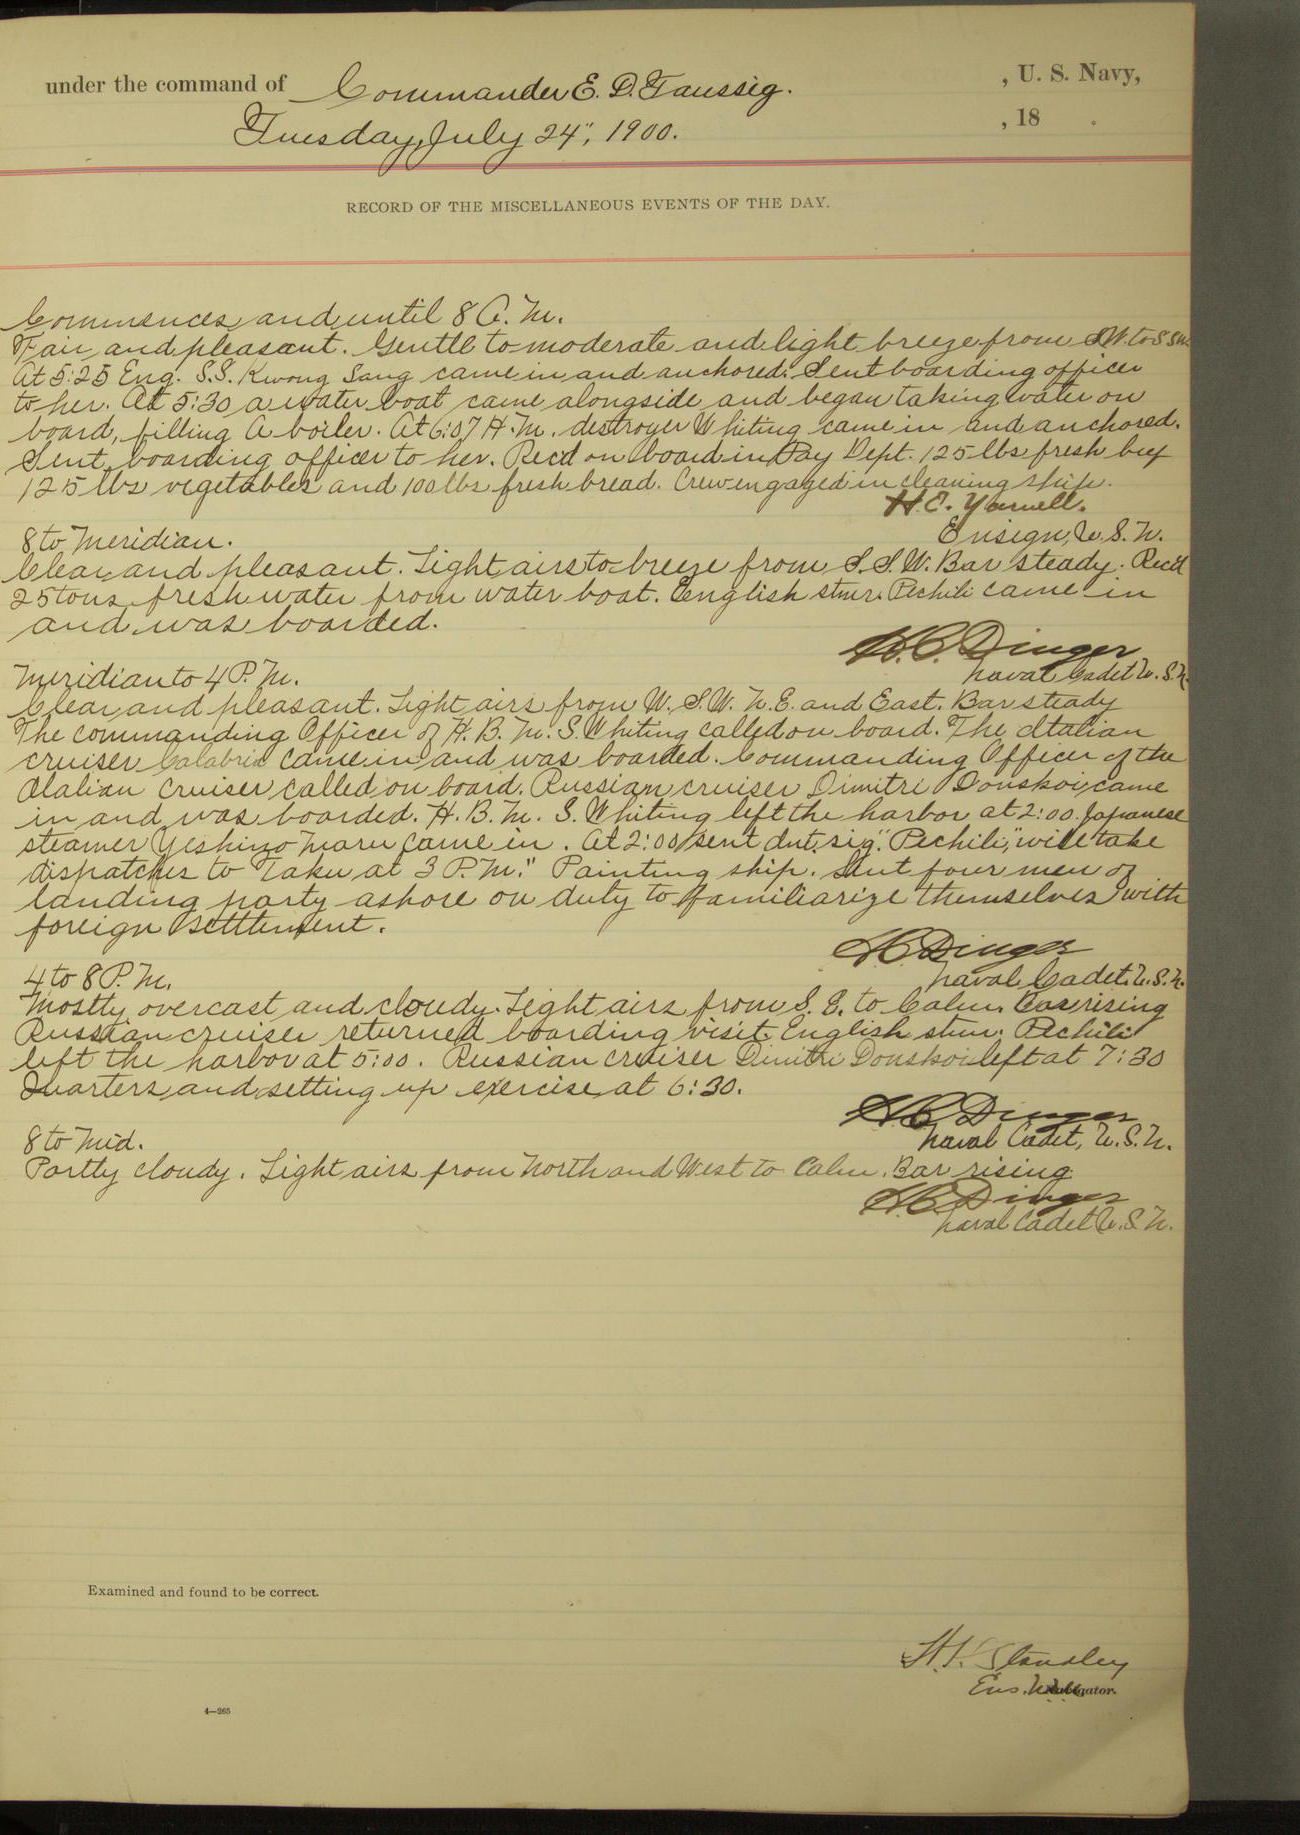 under the command of Commander E. D. Taussig. , U. S. Navy,
Tuesday, July 24", 1900. , 18 .
RECORD OF THE MISCELLANEOUS EVENTS OF THE DAY.
Commences and until 8 A. M.
Fair and pleasant. Gentle to moderate and light breeze from SW. to SSW.
At 5:25 Eng. S.S. Kwong Sang came in and anchored. Sent boarding officer
to her. At 5:30 a water boat came alongside and began taking water on
board, filling A boiler. At 6:07 H.M. destroyer Whiting came in and anchored.
Sent boarding officer to her. Rec'd on board in Pay Dept. 125 lbs fresh beef
125 lbs vegetables and 100 lbs fresh bread. Crew engaged in cleaning ship.
H. E. Yarnell.
Ensign, U. S. N.
8 to Meridian.
Clear and pleasant. Light airs to breeze from S.S.W. Bar steady. Rec'd
25 tons fresh water from water boat. English stmr. Pechili came in
and was boarded.
H. C. Dinger
Naval Cadet U. S. N.
Meridian to 4 P. M.
Clear and pleasant. Light airs from W. S. W. N. E. and East. Bar steady
The commanding Officer of H. B. M. S. Whiting called on board. The Italian
cruiser Calabria came in and was boarded. Commanding Officer of the
Italian cruiser called on board. Russian cruiser Dimitri Donskoi came
in and was boarded. H. B. M. S. Whiting left the harbor at 2:00. Japanese
steamer Yeshino Maru came in. At 2:00 sent sig. "Pechili," will take
dispatches to Taku at 3 P.M." Painting ship. Sent four men of
landing party ashore on duty to familiarize themselves with
foreign settlement.
H C Dinger
Naval Cadet. U. S. N.
4 to 8 P. M.
Mostly overcast and cloudy. Light airs from S. E. to Calm. Bar rising
Russian cruiser returned boarding visit. English stmr. Pechili
left the harbor at 5:00. Russian cruiser Dimitri Donskoi left at 7:30
Quarters and setting up exercise at 6:30.
H C Dinger
Naval Cadet, U. S. N.
8 to Mid.
Partly cloudy. Light airs from North and West to Calm. Bar rising
H C Dinger
Naval Cadet U. S. N.
Examined and found to be correct.
Standley
Ens.
4—265